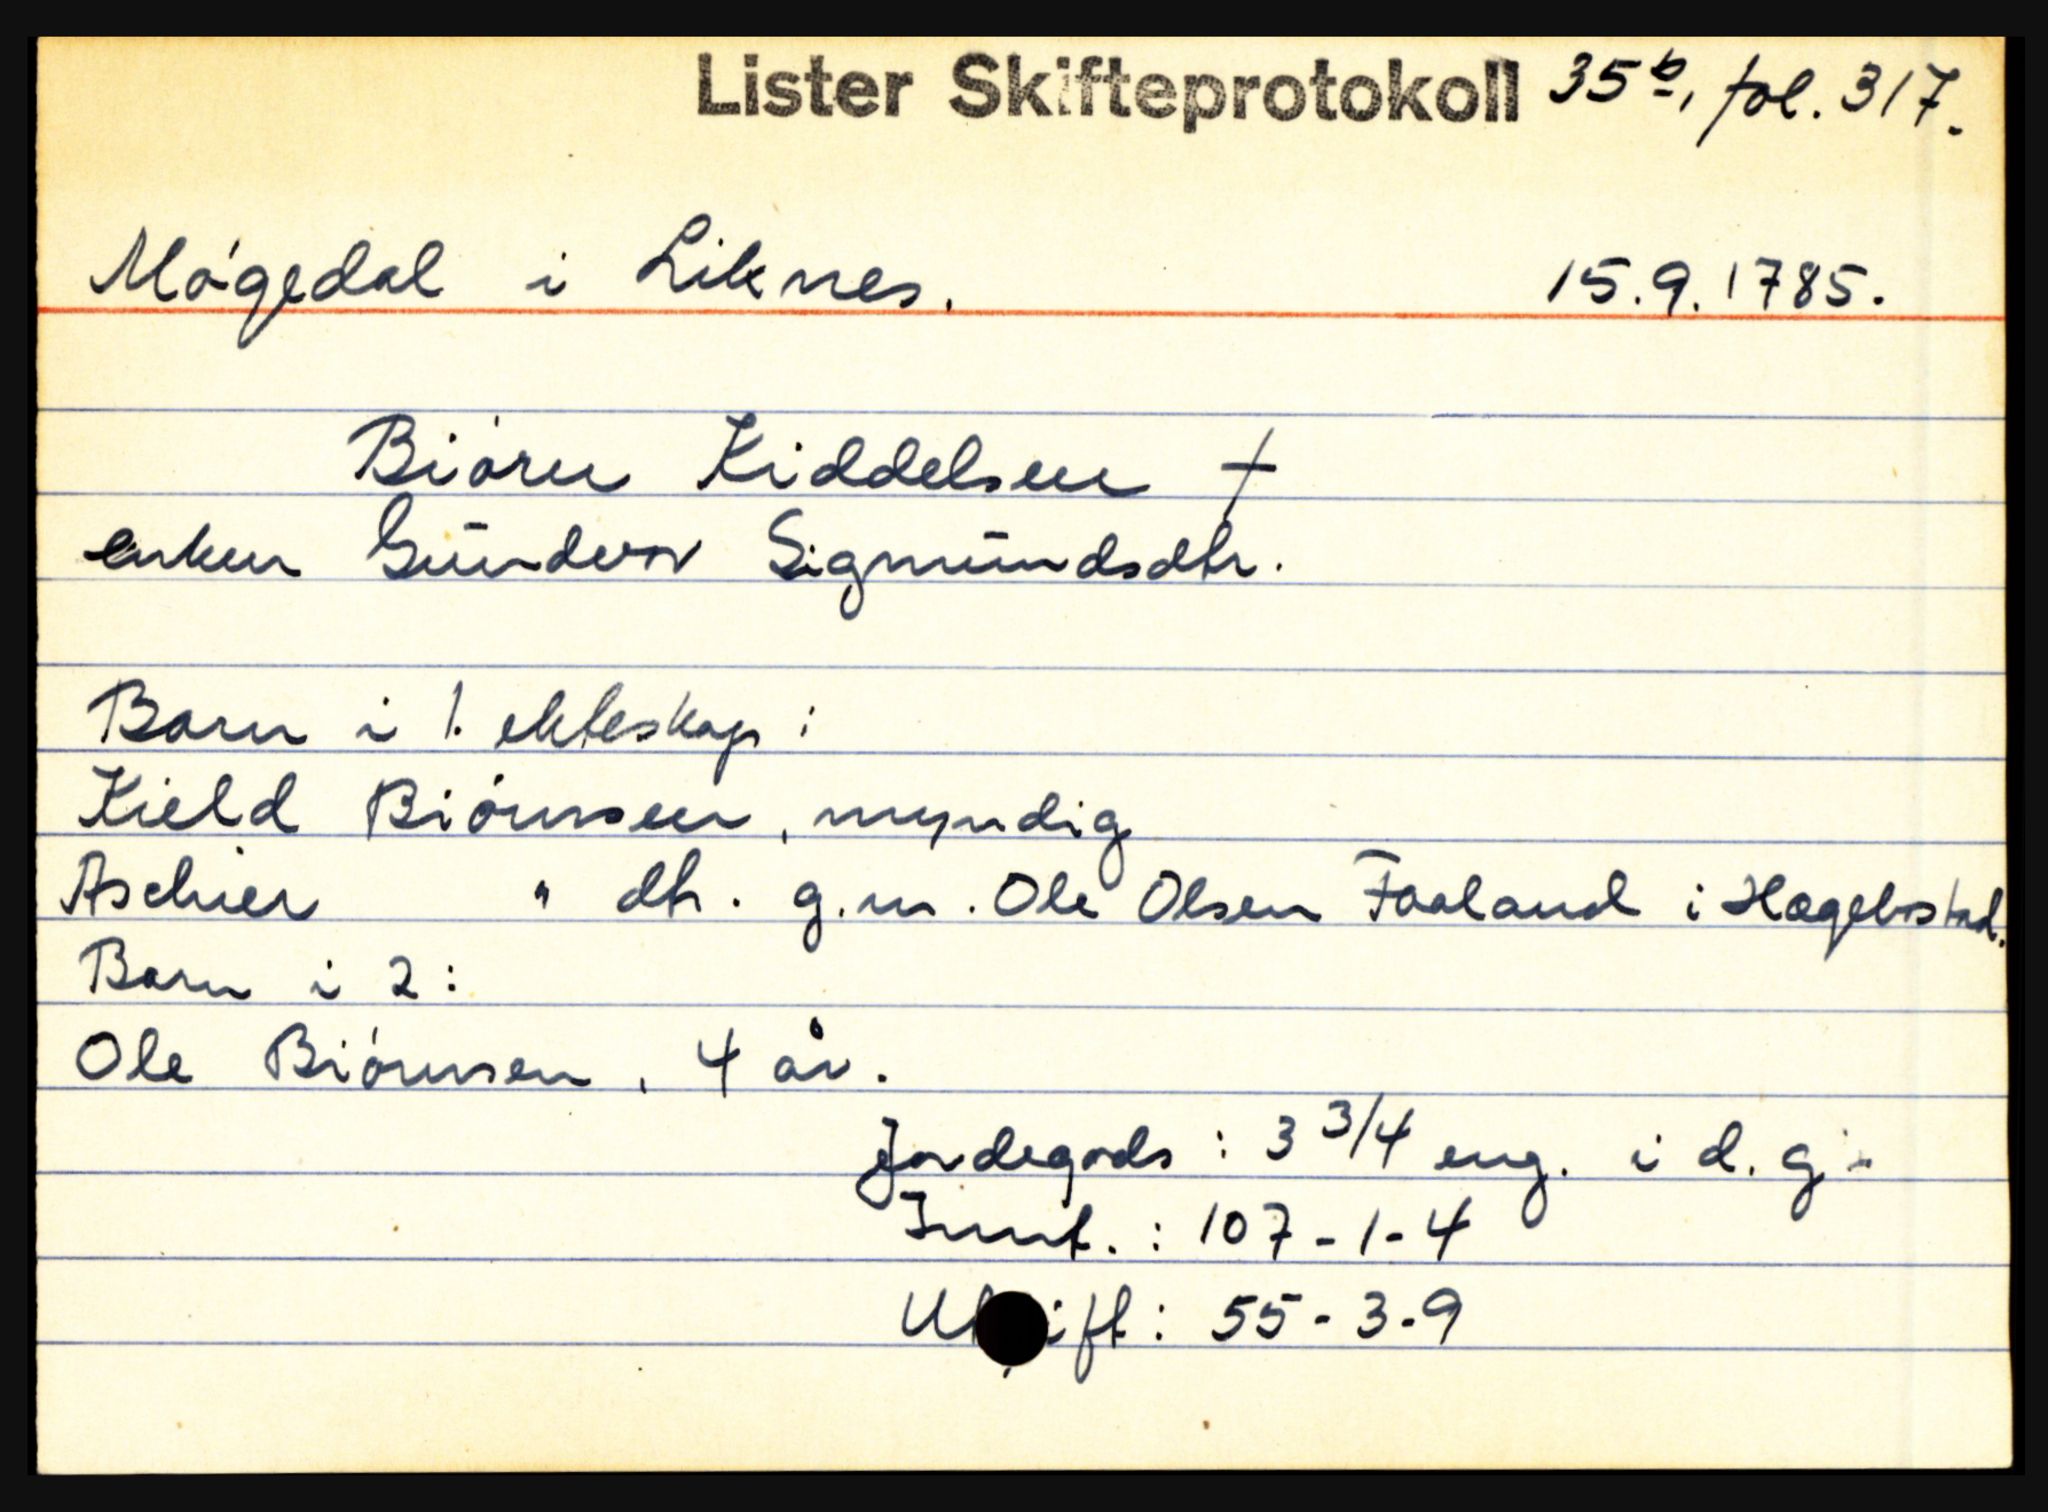 Lister Skifteprotokoll 35b, fol. 317.
Mógedal i Liknes. 15.9.1785.
Biórn Kiddelsen †
enken Gūnder Sigmūndsdtr.
Barn i 1. ekteskap :
Kield Biórnsen, myndig
Aschier " dtr. g.m. Ole Olsen Faaland i Hægebostad.
Barn i 2 :
Ole Biórnsen, 4 år.
Jordegods : 3 3/4 eng. i d. g.
Innt. : 107-1-4
Ut ift : 55-3-9